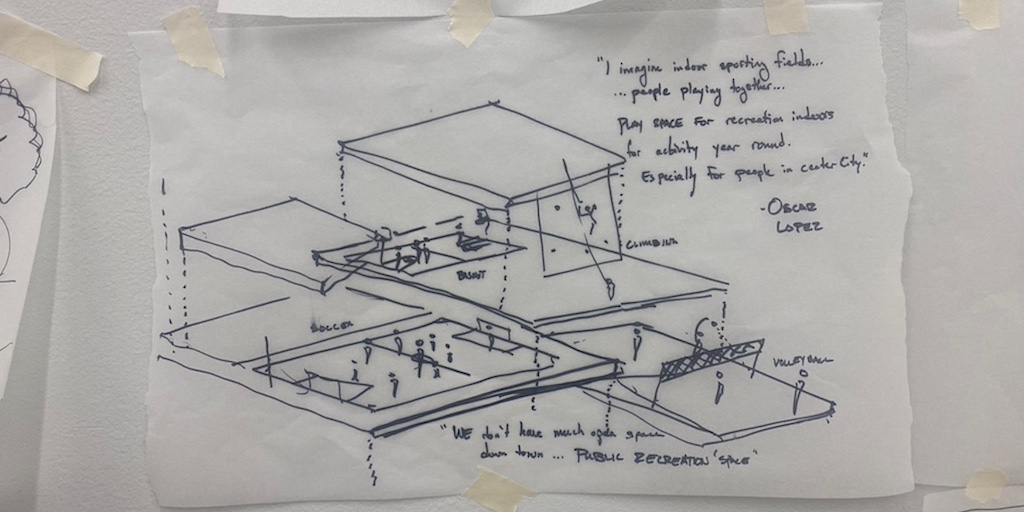 "I imagine indoor sporting fields...
... people playing together...
PLAY SPACE FOR recreation indoors
for activity year round.
Especially for people in center City."
- OSCAR
LOPEZ
CLIMBING
BASKET
SOCCER
VOLLEYBALL
"WE don't have much open space
down town ... PUBLIC RECREATION "SPACE"